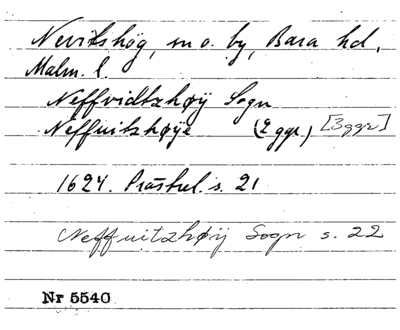 Nevitshög, sn o. by, Bara hd,
Malm. l.
Neffvidtzhøÿ Sogn
Neffuitzhøÿe (2 ggr.) [3 ggr]
1624. Prästrel. s. 21
Neffuitzhøÿ Sogn s. 22
Nr 5540